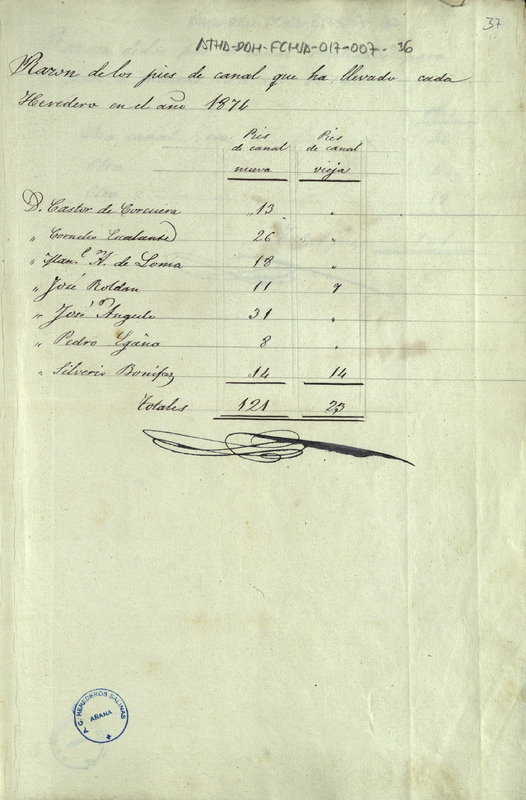 37
ATHA-DAH-FCHVA-017-007-36
Razon de los pies de canal que ha llevado cada
Heredero en el año 1874
Piés de canal nueva
Piés de canal vieja
D. Castor de Corcuera „13 „
„ Cornelio Escalante 26 „
„ Man.l H. de Loma 18 „
„ José Roldan 11 9
„ José Angulo 31 „
„ Pedro Egaña 8 „
„ Silverio Bonifaz 14 14
Totales 121 23
A. G. HEREDEROS SALINAS
AÑANA